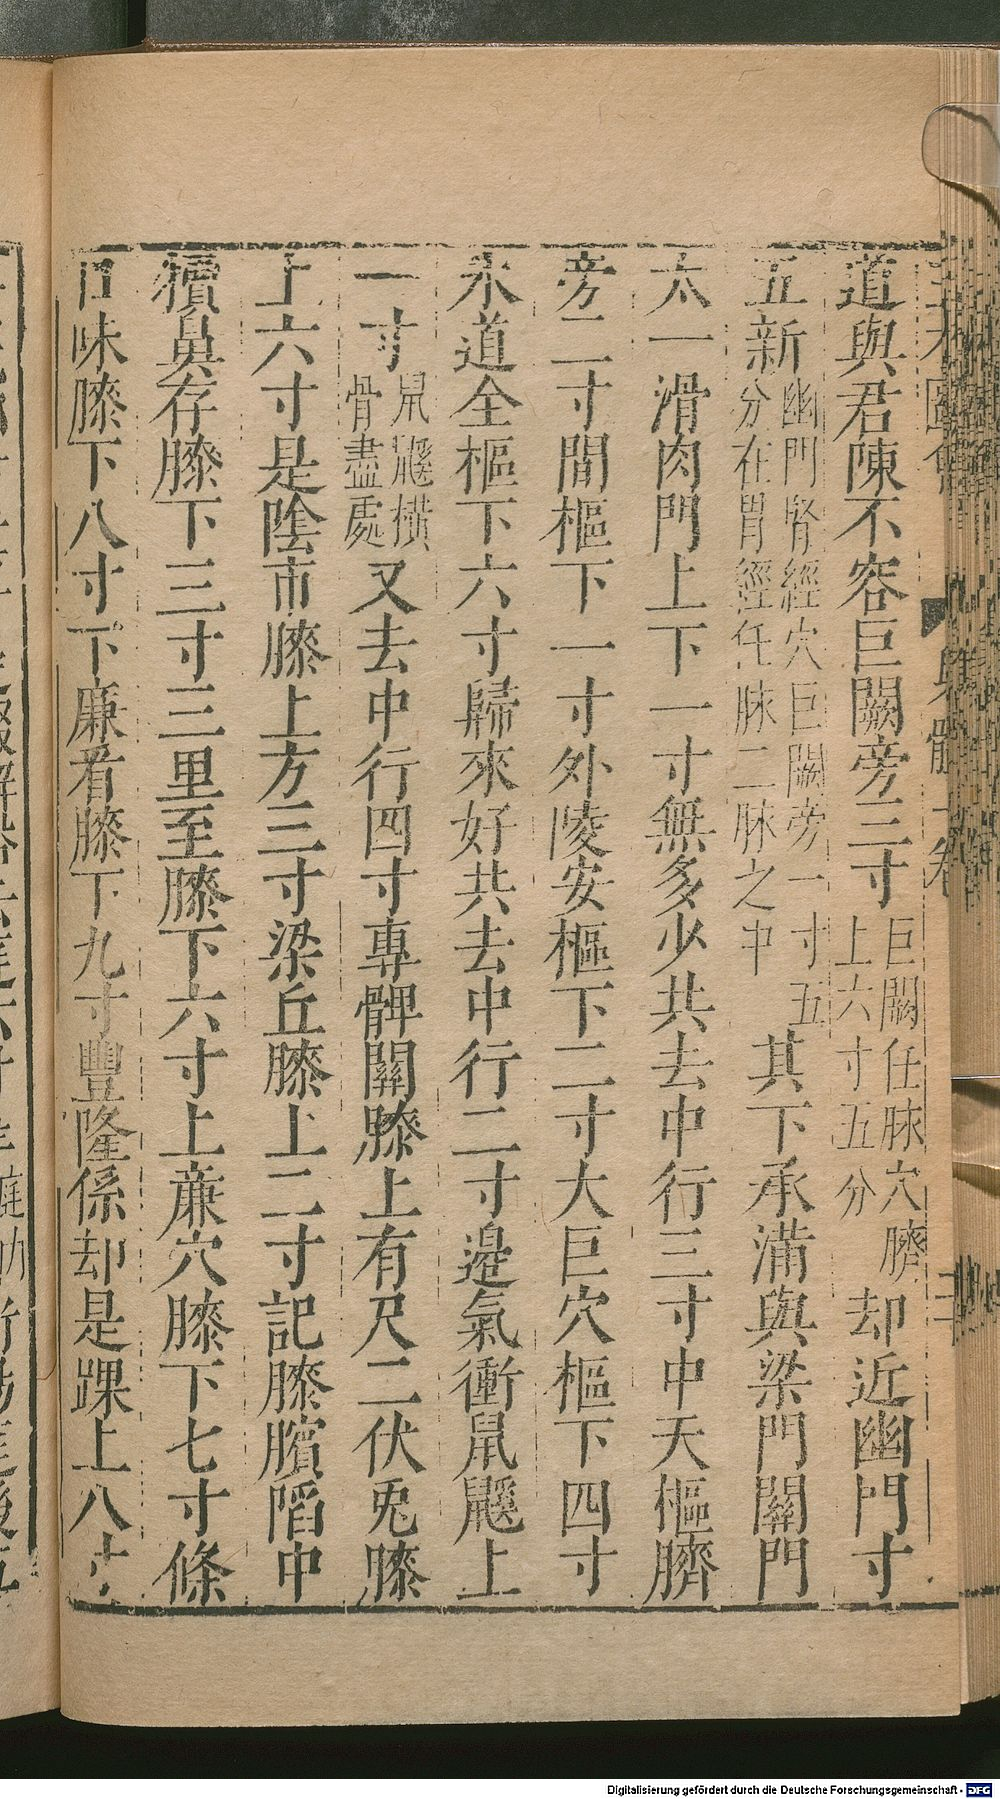 道與君陳不容巨闕旁三寸巨闕任脉穴臍上六寸五分却近幽門寸
五新幽門腎經穴巨闕旁一寸五分在胃經任脉二脉之中其下承滿與梁門關門
太一滑肉門上下一寸無多少共去中行三寸中天樞臍
旁二寸間樞下一寸外陵安樞下二寸大巨穴樞下四寸
水道全樞下六寸歸來好共去中行二寸邉氣衝鼠鼷上
一寸鼠鼷橫骨盡處又去中行四寸專髀關膝上有尺二伏兎膝
上六寸是陰市膝上方三寸梁丘膝上二寸記膝臏䧟中
犢鼻存膝下三寸三里至膝下六寸上亷穴膝下七寸條
口味膝下八寸下廉看膝下九寸豐隆係却是踝上八寸
Digitalisierung gefördert durch die Deutsche Forschungsgemeinschaft - DFG